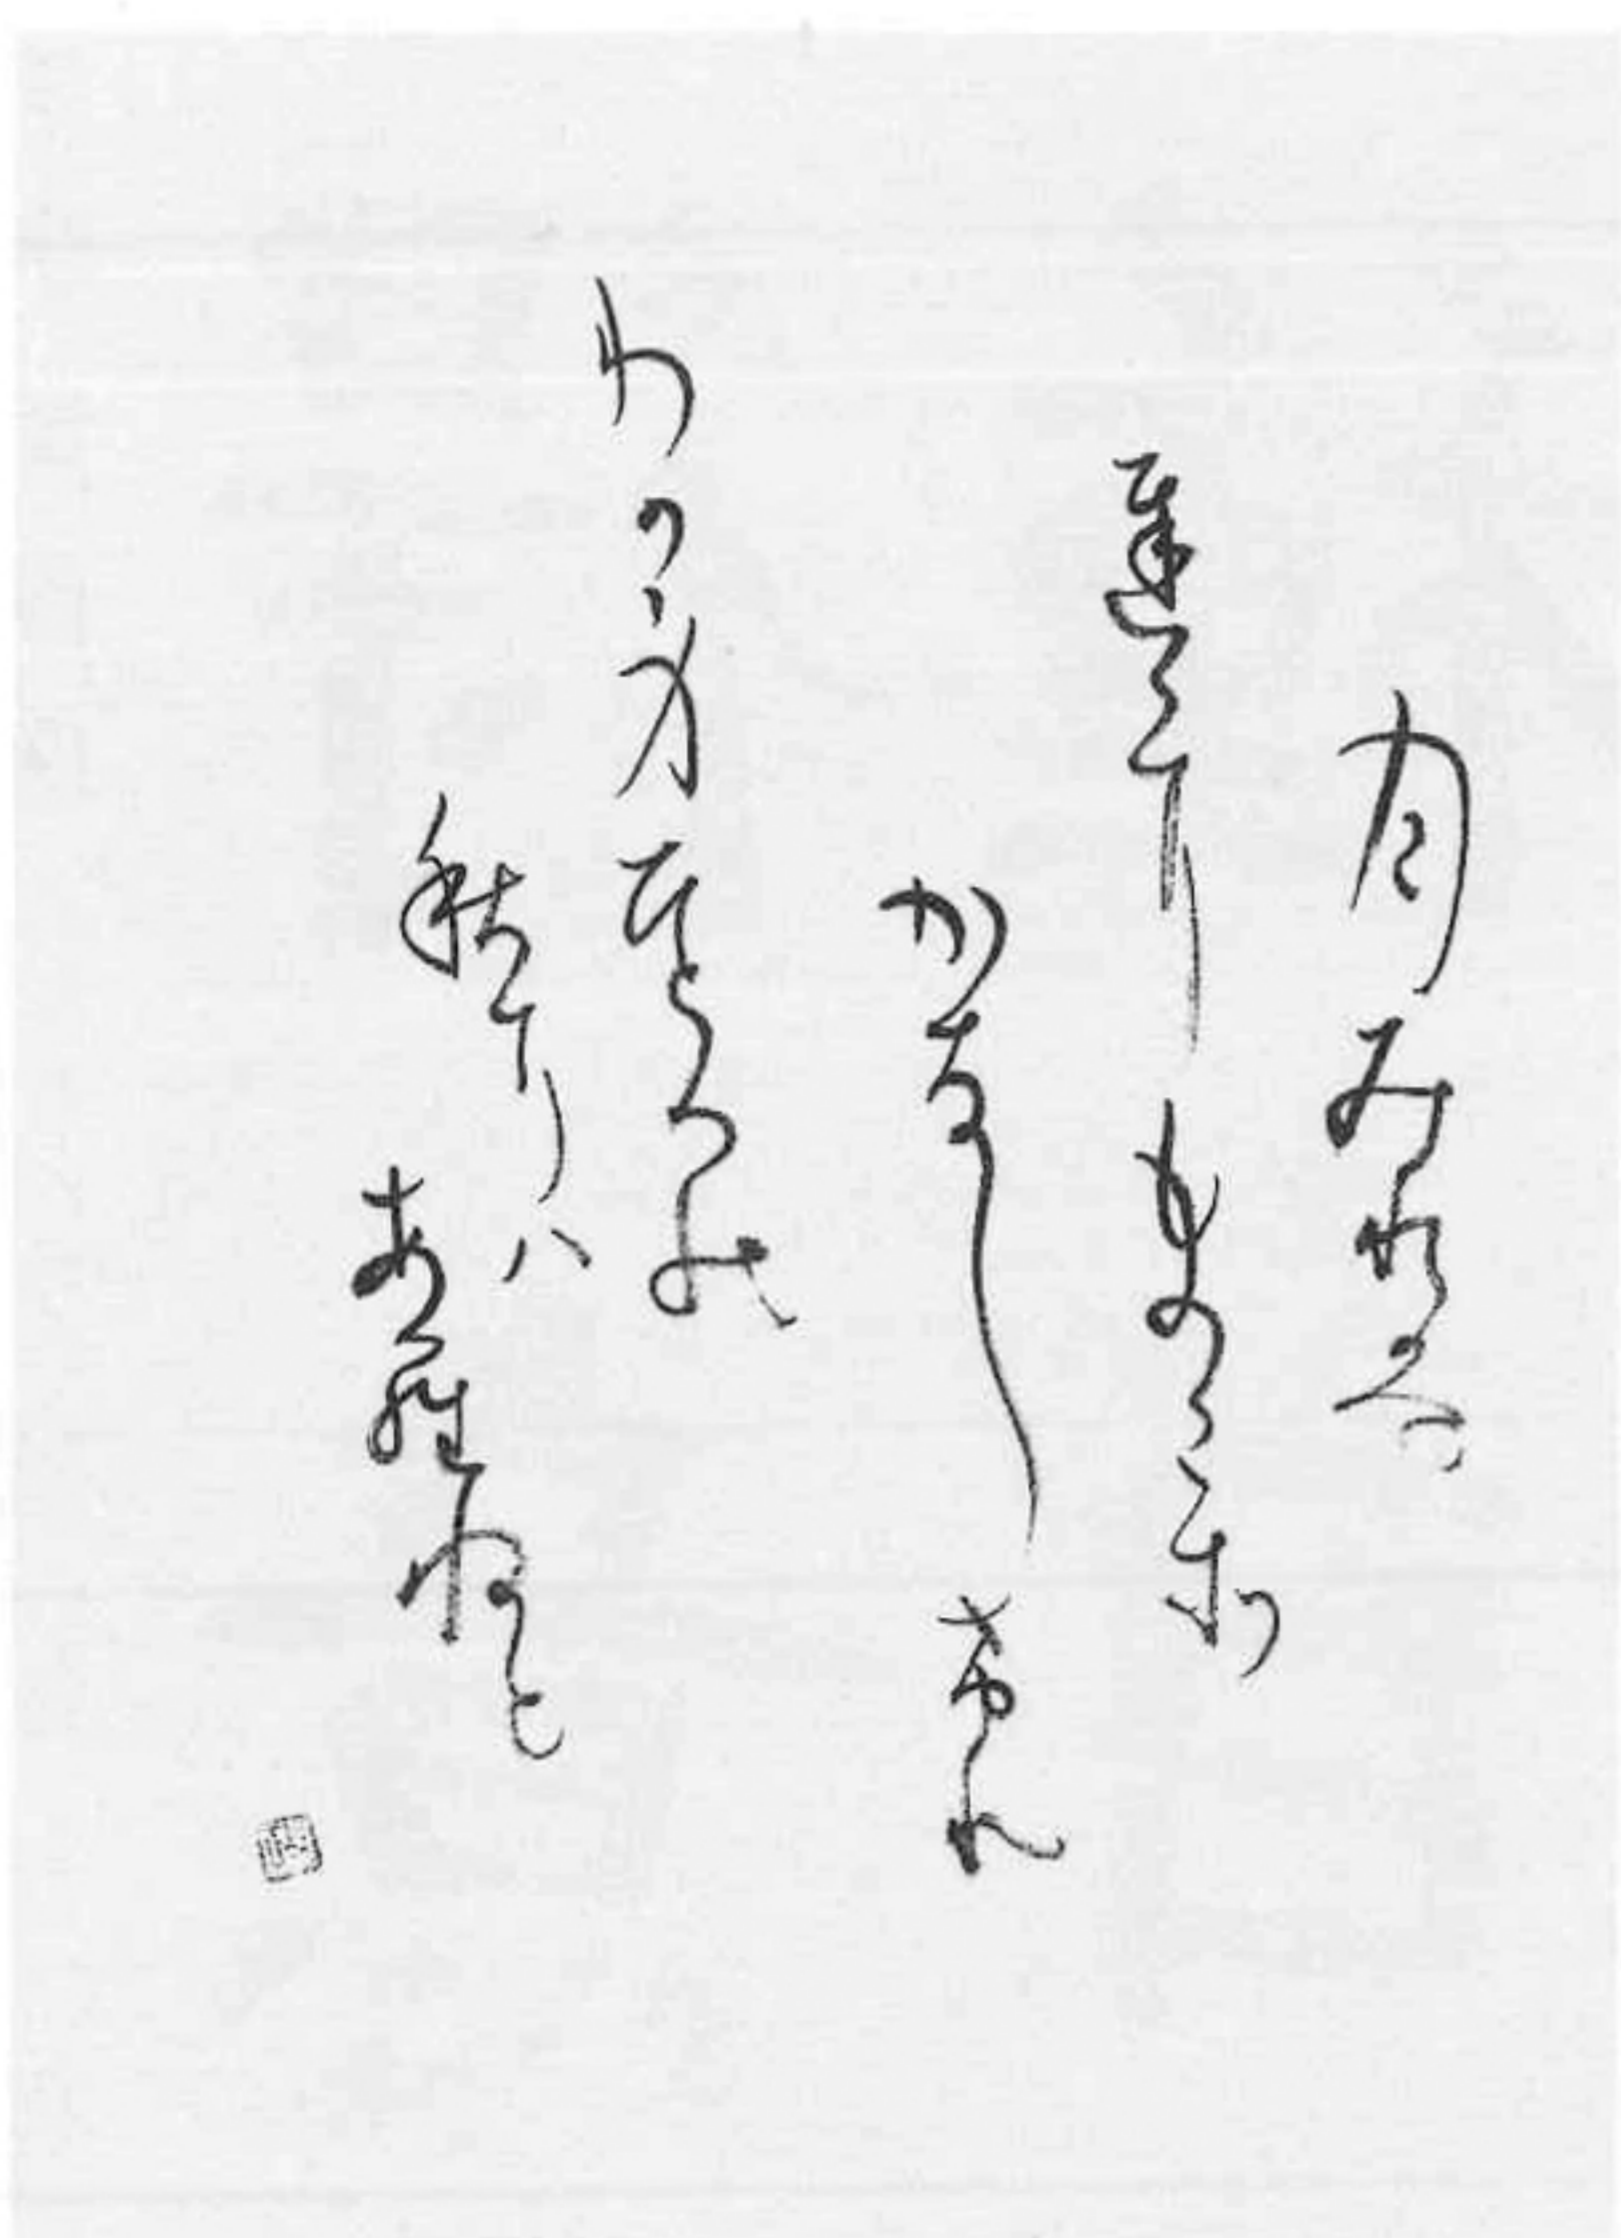 月みれは
ちゝにものこそ
かなしけれ
わか身ひとつの
秋にハ
あらねと